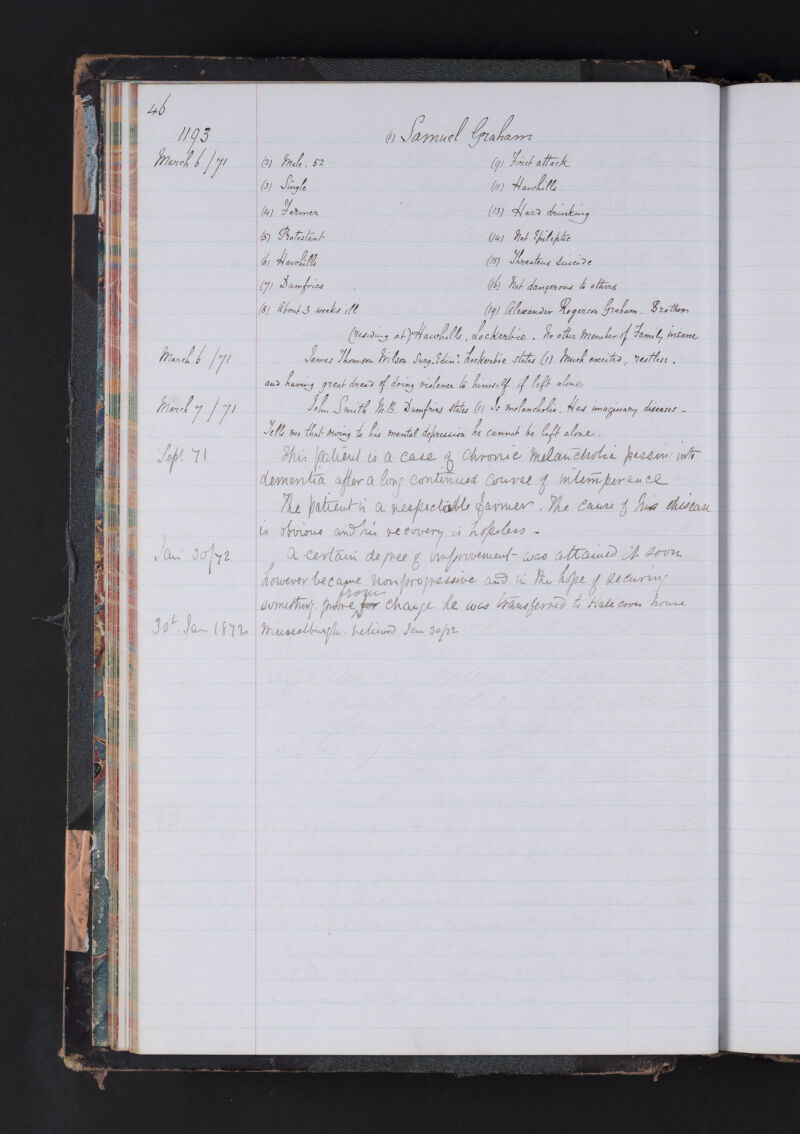 46
1193 (1) Samuel Graham
March 6/71 (2) Male. 52 (9) First attack
(3) Single (11) Hawhills
(4) Farmer (13) Hard drinking
(5) Protestant (14) Not Epileptic
(6) Hawhills (15) Threatens Suicide
(7) Dumfries (16) Not dangerous to others
(8) About 3 weeks ill (19) Alexander Rogerson Graham. Brother
(residing at) Hawhills, Lockerbie. No other Member of Family insane
March 6/71 James Thomson Wilson Surg. Edinr. Lockerbie states (1) Much excited, restless,
and having great dread of doing violence to himself if left alone.
March 7/71 John Smith M.B. Dumfries states (1) Is melancholic. Has imaginary diseases –
Tells me that owing to his mental depression he cannot be left alone.
Sept. 71 This patient is a case of chronic Melancholia passing into
dementia after a long continued course of intemperance
The patient is a respectable farmer. The cause of his disease
is obvious and his recovery is hopeless –
Jan 30/72 A certain degree of improvement was attained it soon
however became nonprogressive and in the hope of securing
something more from for change he was transferred to Hale cross house
30t. Jan 1872 Musselburgh. relieved Jan 30/72